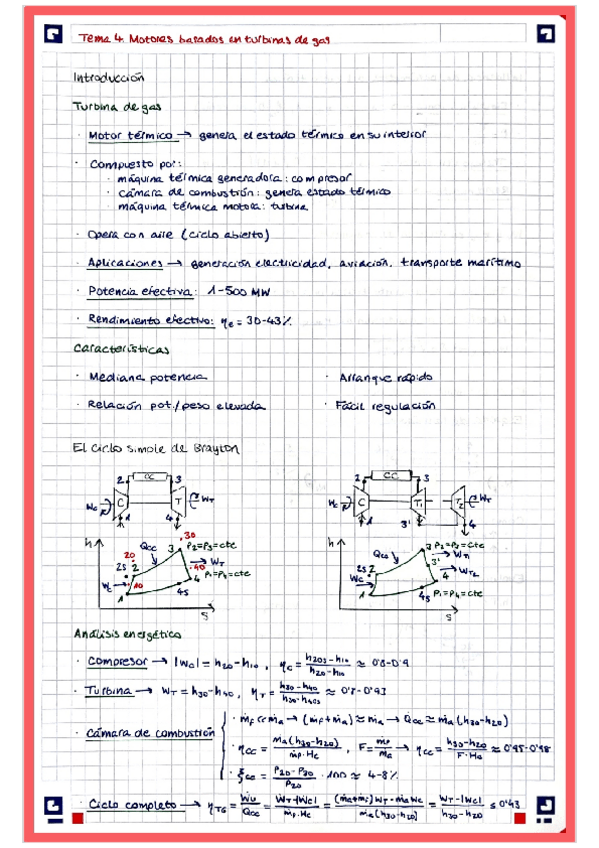 Tema 4. Motores basados en turbinas de gas
Introducción
Turbina de gas
· Motor térmico → genera el estado térmico en su interior
· Compuesto por:
· máquina térmica generadora: compresor
· cámara de combustión: genera estado térmico
· máquina térmica motora: turbina
· Opera con aire (ciclo abierto)
· Aplicaciones → generación electricidad, aviación, transporte marítimo
· Potencia efectiva: 1-500 MW
· Rendimiento efectivo: ηe = 30-43%
Características
· Mediana potencia · Arranque rápido
· Relación pot./peso elevada · Fácil regulación
El ciclo simple de Brayton
2 CC 3
Wc C T WT
1 4
h
30
20 Qcc 3 P2=P3=cte
2s 2 WT
40
Wc 10 4 P1=P4=cte
1 4s
s
2 CC 3
Wc C T1 T2 WT
1 3' 4
h
3 P2=P3=cte
Qcc 3' WT1
2s 2 WT2
Wc 4
1 4s P1=P4=cte
s
Análisis energético
· Compresor → |Wc| = h20-h10 , ηc = h20s-h10 / h20-h10 ≈ 0'8-0'9
· Turbina → WT = h30-h40 , ηT = h30-h40 / h30-h40s ≈ 0'8-0'93
· Cámara de combustión
· ṁF << ṁa → (ṁF+ṁa) ≈ ṁa → Q̇cc ≈ ṁa (h30-h20)
· ηcc = ṁa(h30-h20) / ṁF·Hc , F = ṁF / ṁa → ηcc = h30-h20 / F·Hc ≈ 0'95-0'98
· ξcc = P20-P30 / P20 · 100 ≈ 4-8%
· Ciclo completo → ηTG = Ẇu / Q̇cc = ẆT-|Ẇc| / ṁF·Hc = (ṁa+ṁF)WT-ṁaWc / ṁa(h30-h20) = WT-|Wc| / h30-h20 ≤ 0'43